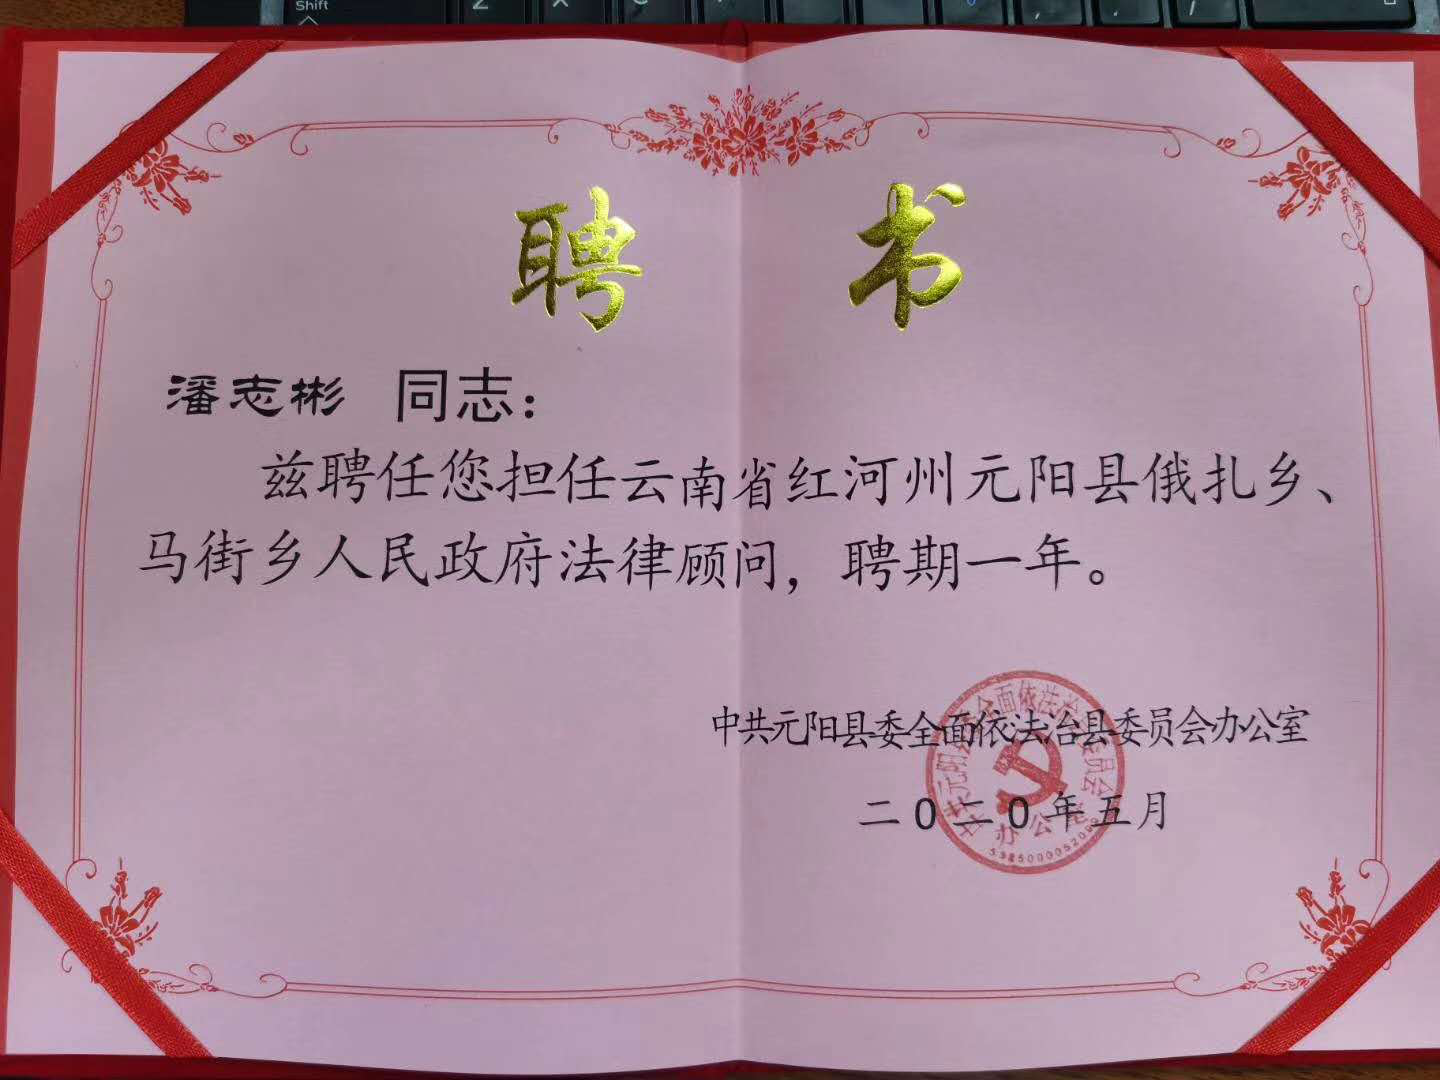 Shift
Z
X
聘书
潘志彬 同志：
兹聘任您担任云南省红河州元阳县俄扎乡、
马街乡人民政府法律顾问，聘期一年。
中共元阳县委全面依法治县委员会办公室
二0二0年五月